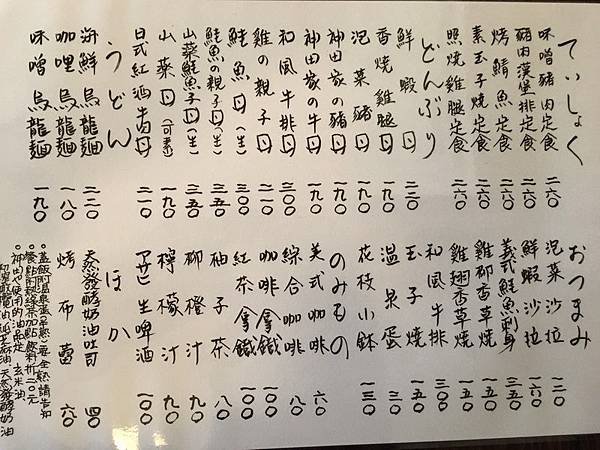 ていしょく
味噌豬肉定食 二六〇
豬肉漢堡排定食 二六〇
烤鯖魚定食 二六〇
素玉子燒定食 二六〇
照燒雞腿定食 二六〇
どんぶり
鮮蝦丼 二二〇
香燒雞腿丼 一九〇
泡菜豬丼 一九〇
神田家の豬丼 一九〇
神田家の牛丼 一九〇
和風牛排丼 三〇〇
雞の親子丼 二一〇
鮭魚丼(生) 三〇〇
鮭魚の親子丼(生) 三五〇
山藥鮭魚子丼(生) 三五〇
山藥丼(可素) 一九〇
日式紅酒牛肉丼 二一〇
うどん
海鮮烏龍麵 二二〇
咖哩烏龍麵 一八〇
味噌烏龍麵 一九〇
おつまみ
泡菜沙拉 一二〇
鮮蝦沙拉 一六〇
義式鮭魚刺身 三五〇
雞柳香草燒 一五〇
雞翅香草燒 一五〇
和風牛排 三〇〇
玉子燒 一五〇
溫泉蛋 三〇
花枝小鉢 一三〇
のみもの
美式咖啡 六〇
綜合咖啡 八〇
咖啡拿鐵 一〇〇
紅茶拿鐵 一〇〇
柚子茶 八〇
柳橙汁 九〇
檸檬汁 九〇
アサヒ生啤酒 一〇〇
ほか
天然發酵奶油吐司 四〇
烤布蕾 六〇
。蓋飯附溫泉蛋(半熟)要全熟請告知
。餐點附綠茶加點飲料折二〇元
。神田の使用的油品是 玄米油、
初榨橄欖油、純芝麻油、天然發酵奶油